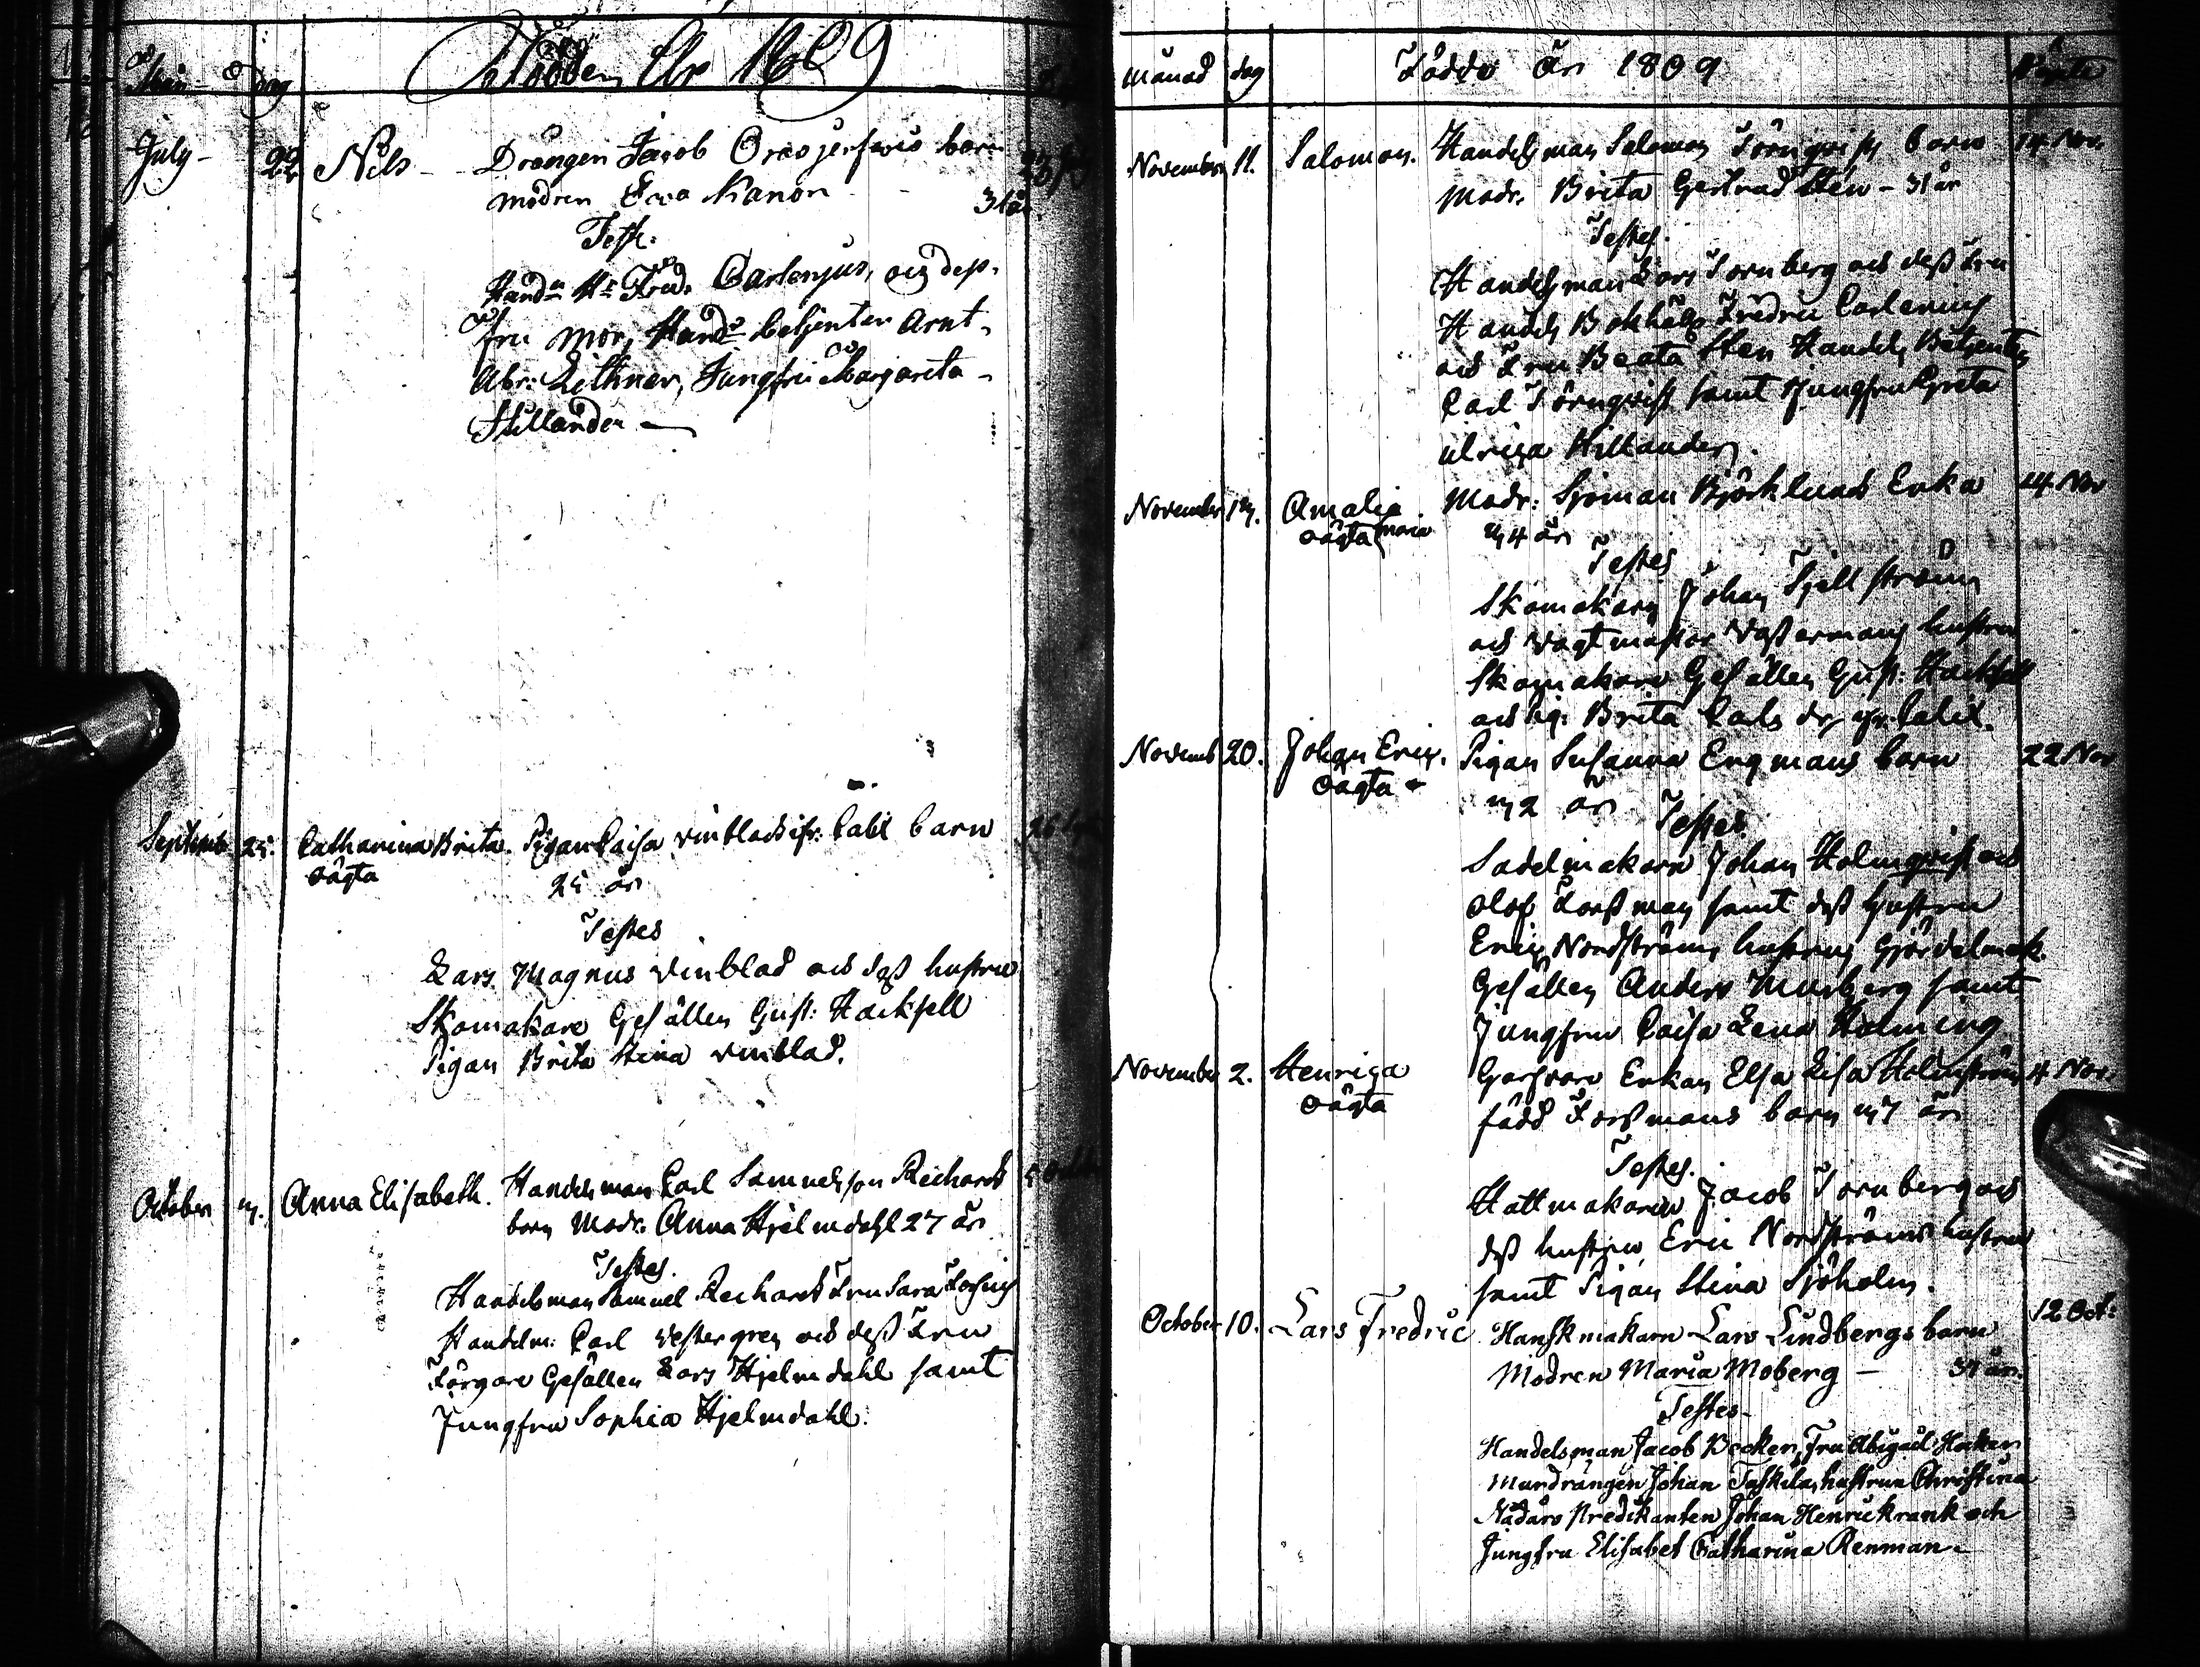 Födde År 1809
Mån- Dag
July - 22 Nils - Drängen Jacob barn
modren Ewa Kanon - 31 år.
Test:
Hand: Hr Fred. Carlenjus, och dess
fru mor, Hand: betjenten Arnt.
Abr: Lithner, Jungfru Margareta
Hillander
Septemb 25. Catharina Brita. Pigan Caisa vinblad ifr. Calix barn 26
oägta 25 år
Testes
Lars Magnus vinblad och dess hustru
Skomakare Gesällen Gust: Hackzell
Pigan Brita Stina vinblad.
October Anna Elisabeth. Handelsman Carl Samuelsson Rechardt
barn Modr: Anna Hjelmdahl 27 år
Testes.
Handelsman Samuel Rechardt Fru Sara
Handelsm: Carl Westergren och dess Fru
Färgare Gesällen Lars Hjelmdahl samt
Jungfru Sophia Hjelmdahl.
månad dag Födde År 1809 Döpte
November 11. Salomon. Handelsman Salomon Törnqvists barn 14 Nov.
Modr. Brita Gertrud Sten - 31 år
Testes.
Handelsman Lars Tornberg och dess Fru
Handels Bokhålls Fredric Carlenius
och Fru Beata Sten Handels Betjenten
Carl Törnqvist samt Jungfru Greta
Ulrica Hillander.
November Amalia Maria Modr: Sjöman Björklunds Enka 14 Nov
oägta 44 år
Testes
Skomakaren Johan Fjellström
och Vagtmästar Westermans hustru
Skomakare Gesällen Gust: Hackzell
och Pig: Brita Carls dr ifr. Calix.
Novemb 20. Johan Eric. Pigan Susanna Engmans barn 22 Nov
oägta år
Testes
Sadelmakare Johan Holmqvist och
Olof Forssman samt dess Hustru
Eric Nordströms hustru Gjördelmak.
Gesällen Anders Morberg samt
Jungfru Caisa Lena Holming
November 2. Henrica Garfvare Enkan Elsa Lisa Holmström 4 Nov.
oägta född Forssmans barn år
Testes.
Hattmakaren Jacob Tornberg och
dess hustru, Eric Nordströms hustru
samt Pigan Stina Sjöholm.
October 10. Lars Fredric Hanskmakarn Lars Lindbergs barn 12 Oct:
Modren Maria Moberg - 37 år.
Testes-
Handelsman Jacob Becker, Fru Abigael
Murdrängen Johan hustrun Christina
Predikanten Johan Henric krank och
Jungfru Elisabet Catharina Renman.